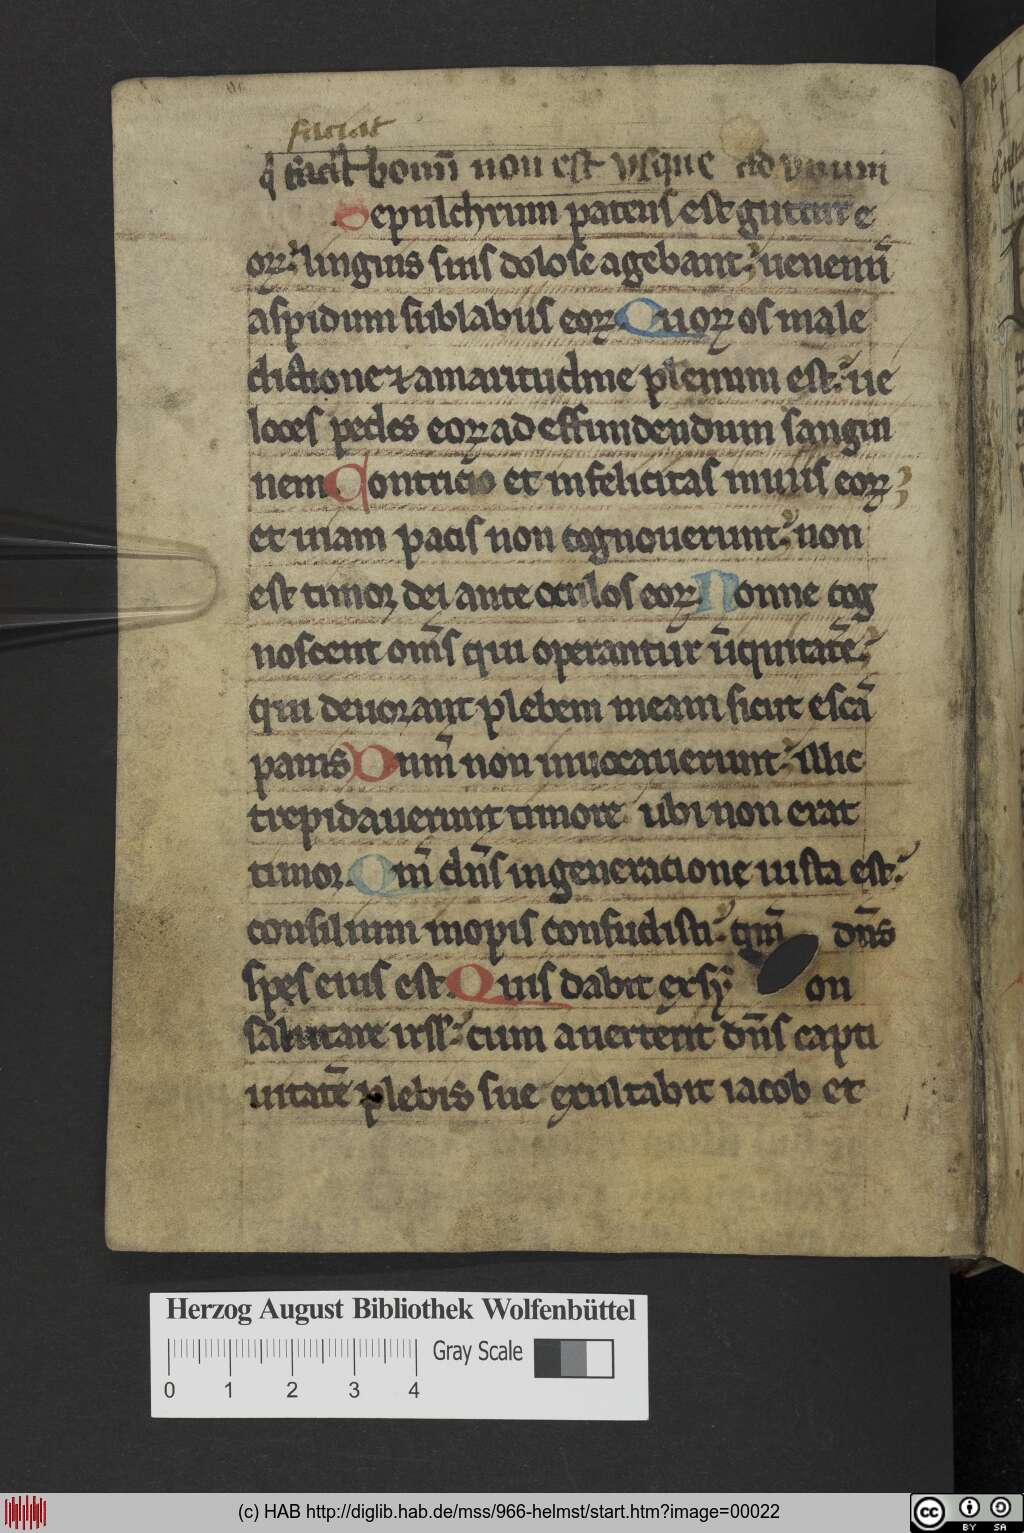 faciat
q̇ facit bonū non est vsque ad vnum
Sepulchrum patens est guttur e
oꝝ: linguis suis dolose agebant: uenenū
aspidum sub labiis eoꝝ Quoꝝ os male
dictione ⁊ amaritudine plenum est: ue
loces pedes eoꝝ ad effundendum sangui
nem Contricio et infelicitas in uiis eoꝝ;
et uiam pacis non cognouerunt: non
est timor dei ante oculos eoꝝ. Nonne cog
noscent om̄s qui operantur īiquitatē:
qui deuorant plebem meam sicut escā
panis Dum̄ non inuocauerunt: illic
trepidauerunt timore ubi non erat
timor. Qm̄ dn̄s in generatione iusta est:
consilium inopis confudisti: qm̄ dn̄s
spes eius est. Quis dabit ex sy on
salutare isrl: cum auerterit dn̄s capti
uitatē plebis sue exultabit iacob et
Herzog August Bibliothek Wolfenbüttel
Gray Scale
0 1 2 3 4
(c) HAB http://diglib.hab.de/mss/966-helmst/start.htm?image=00022
cc BY SA